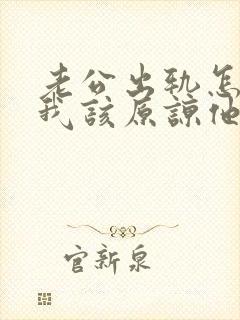 老公出轨怎
我該原諒他
官新泉